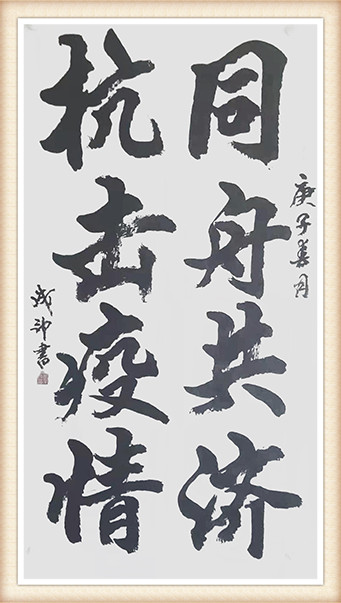 庚子春月
同舟共济
抗击疫情
書